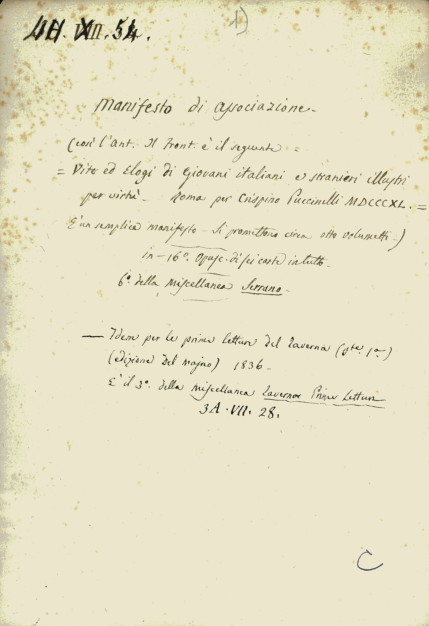 1)
VII. 54.
Manifesto di associazione -
(così l'Ant. Il Front. è il seguente =
= Vite ed Elogi di Giovani italiani e stranieri illustri
per virtù - Roma per Crispino Puccinelli MDCCCXL. =
È un semplice manifesto - Si promettono circa otto volumetti -)
in - 16º. Opusc. di sei carte in tutto -
6º. della Miscellanea Serrano -
— Idem per le prime Letture del Taverna (pte. 1ª.)
(edizione del majno) 1836 -
È il 3º. della Miscellanea Taverna Prime Letture
3A . VII . 28 .
C